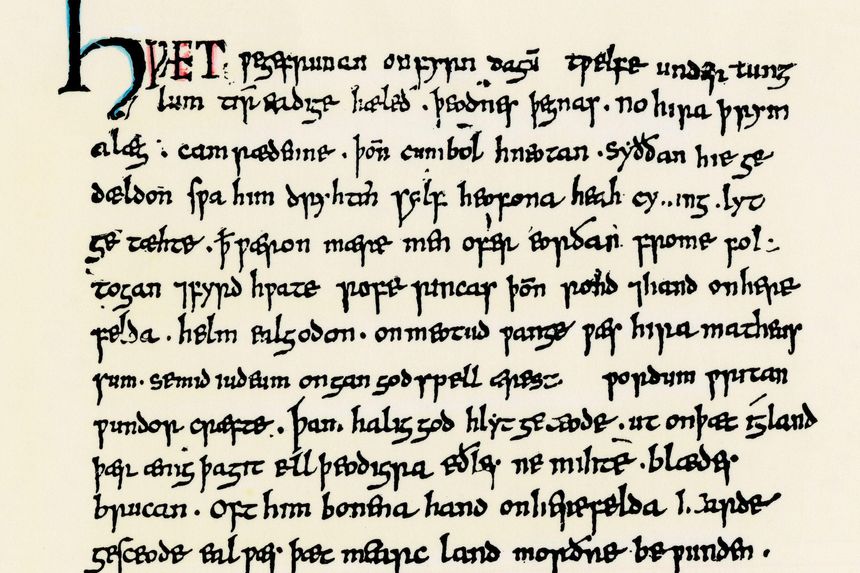 HǷÆT ƿegefrunan onfyrn dagū tƿelfe under tung
lum tir eadige hæleð . þeodnes þegnas . no hira þrym
alæg . camrædenne . þoñ cumbol hneotan . syððan hie ge
dældon sƿa him dryhten sylf heofona heah cy..ing . lyt
ge tæhte . ꝥ ƿæron mære men ofer eorðan frome fol
togan ⁊fyrd hƿate rofe rincas þoñ rond ⁊hand onhere
felda . helm ealgodon . onmeotud ƿange ƿæs hira matheus
sum . semid iudeum ongan godspell ærest ƿordum ƿritan
ƿundor cræfte . þam halig god hlyt geteode . ut onþæt igland
þær ænig þagit ellþeodigra eðles ne mihte . blædes
brucan . Oft him bonena hand onherefelda
gesceode eal ƿæs þæt mearc land morðre be ƿunden .